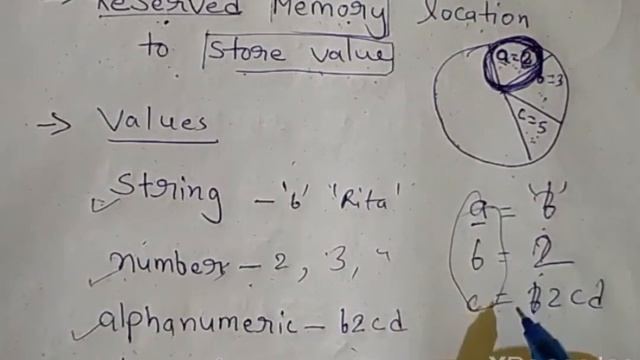 Reserved Memory location
to Store value
a=2
b=3
c=5
→ Values
String - 'b' 'Rita'
a = 'b'
number - 2, 3, 4
b = 2
alphanumeric - b2cd
c = b2cd